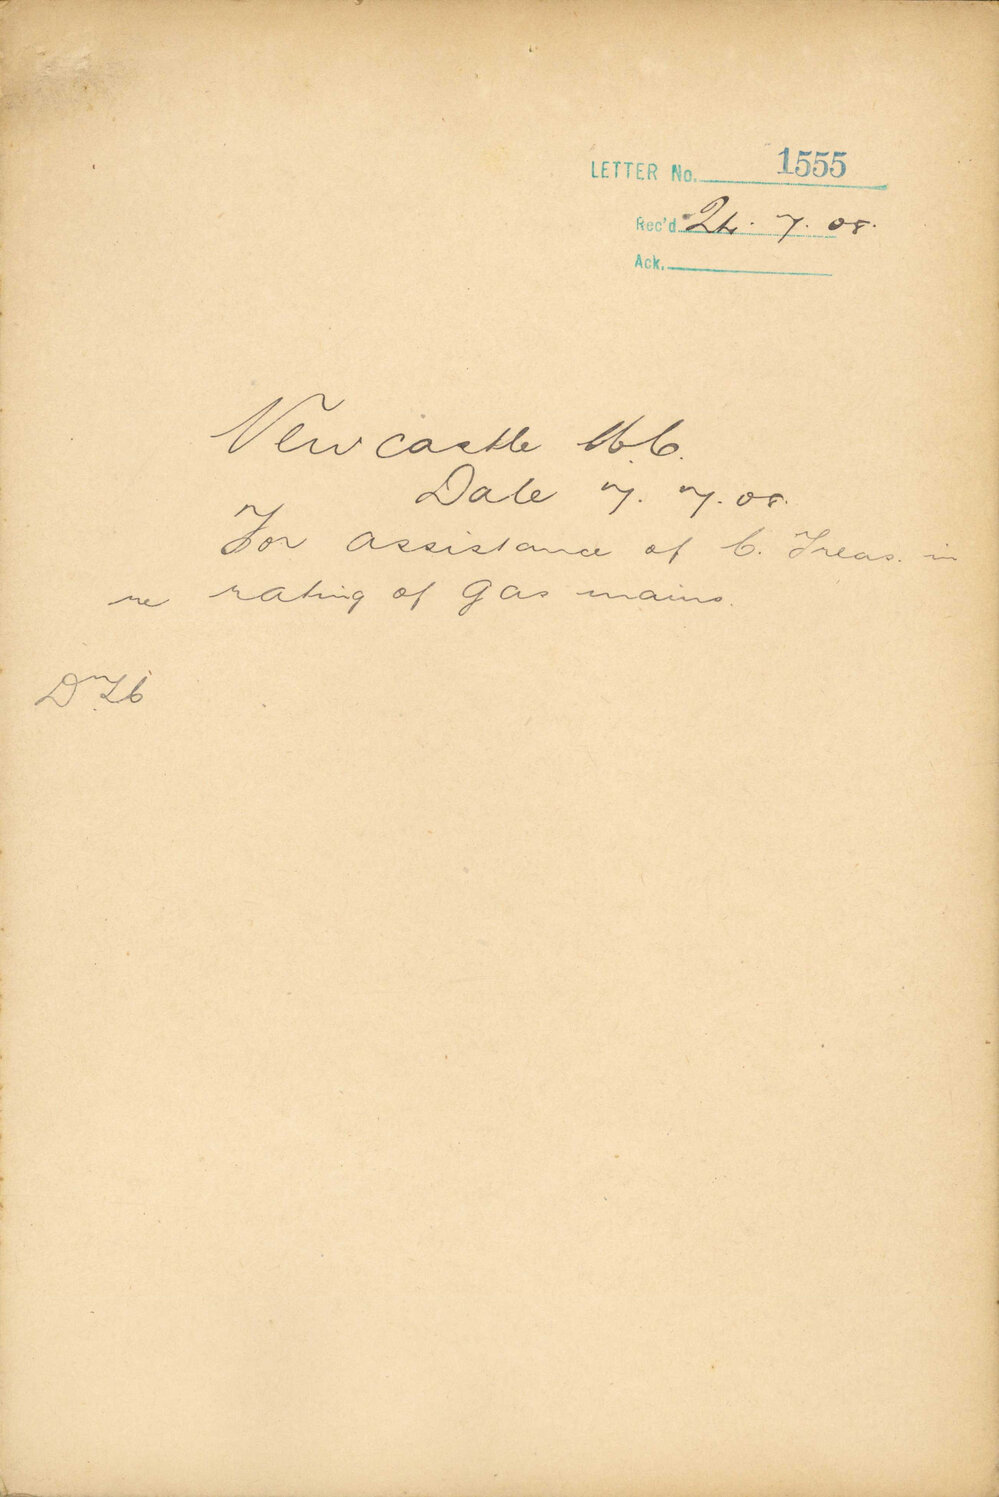 LETTER No. 1555
Rec'd 24. 7. 08.
Ack.
Newcastle M.C.
Date 7. 7. 08.
For assistance of C. Treas. in
re rating of gas mains.